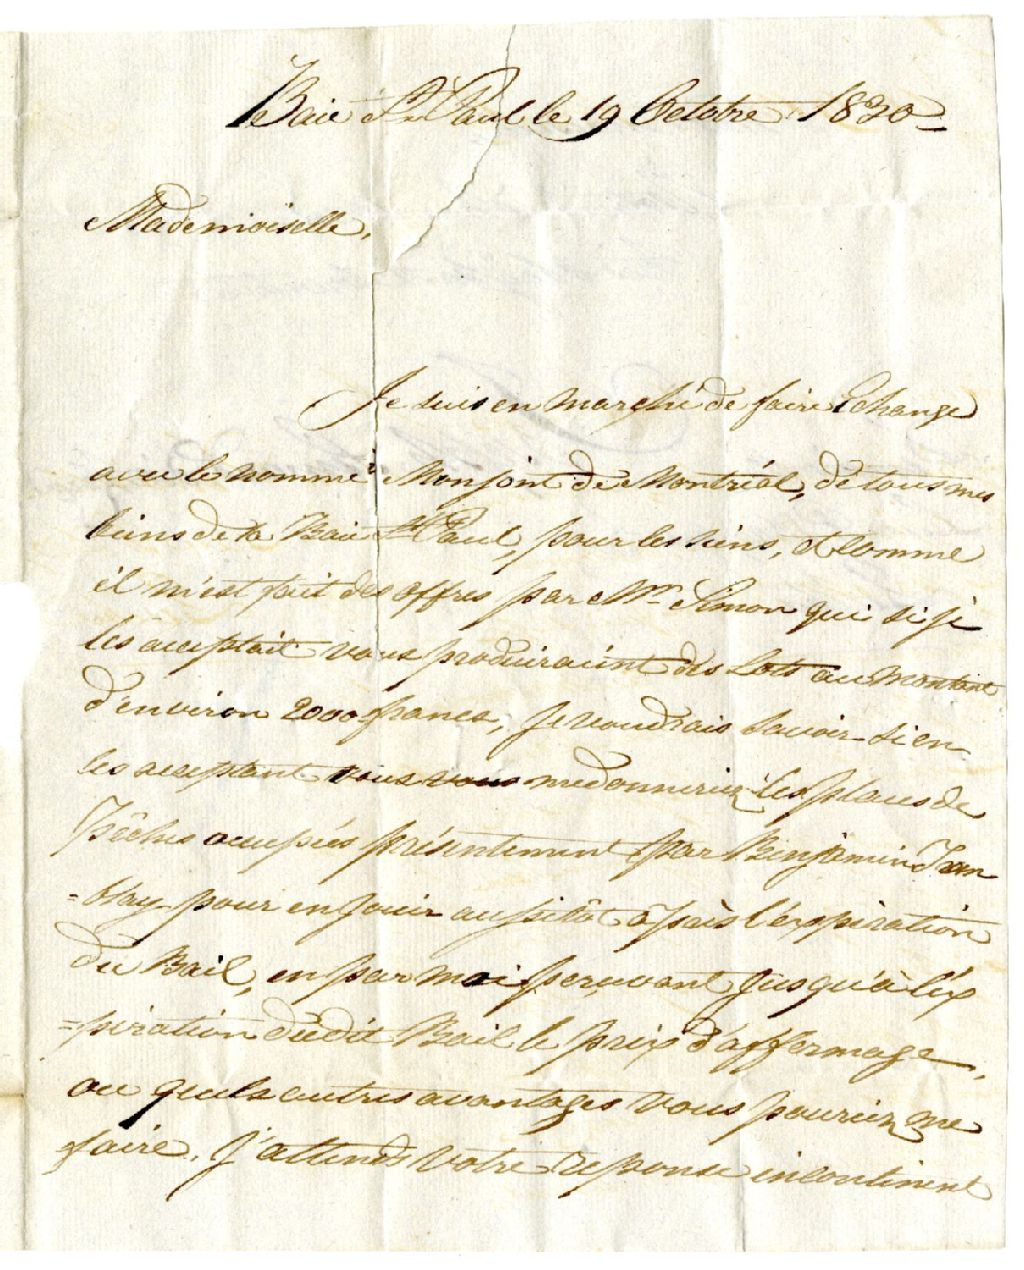 Baie St Paul le 19 Octobre 1830
Mademoiselle,
Je suis en marché de faire Echange
avec le nommé Monjoint de Montréal, de tous mes
biens de la Baie St Paul, pour les siens, et comme
il m'est fait des offres par Mr. Simon qui si je
les acceptait vous produiraint des Lots au montant
d'environ 2000 francs, je voudrais savoir si en
les acceptant vous me donneriez les places de
Pêches occupées présentement par Benjamin Trem
=blay pour en jouir aussitôt après l'expiration
du Bail, en par moi perçevant jusqu'à l'ex
=piration dudit Bail le prix d'affermage,
ou quels autres avantages vous pouriez me
faire. J'attends votre reponse incontinent